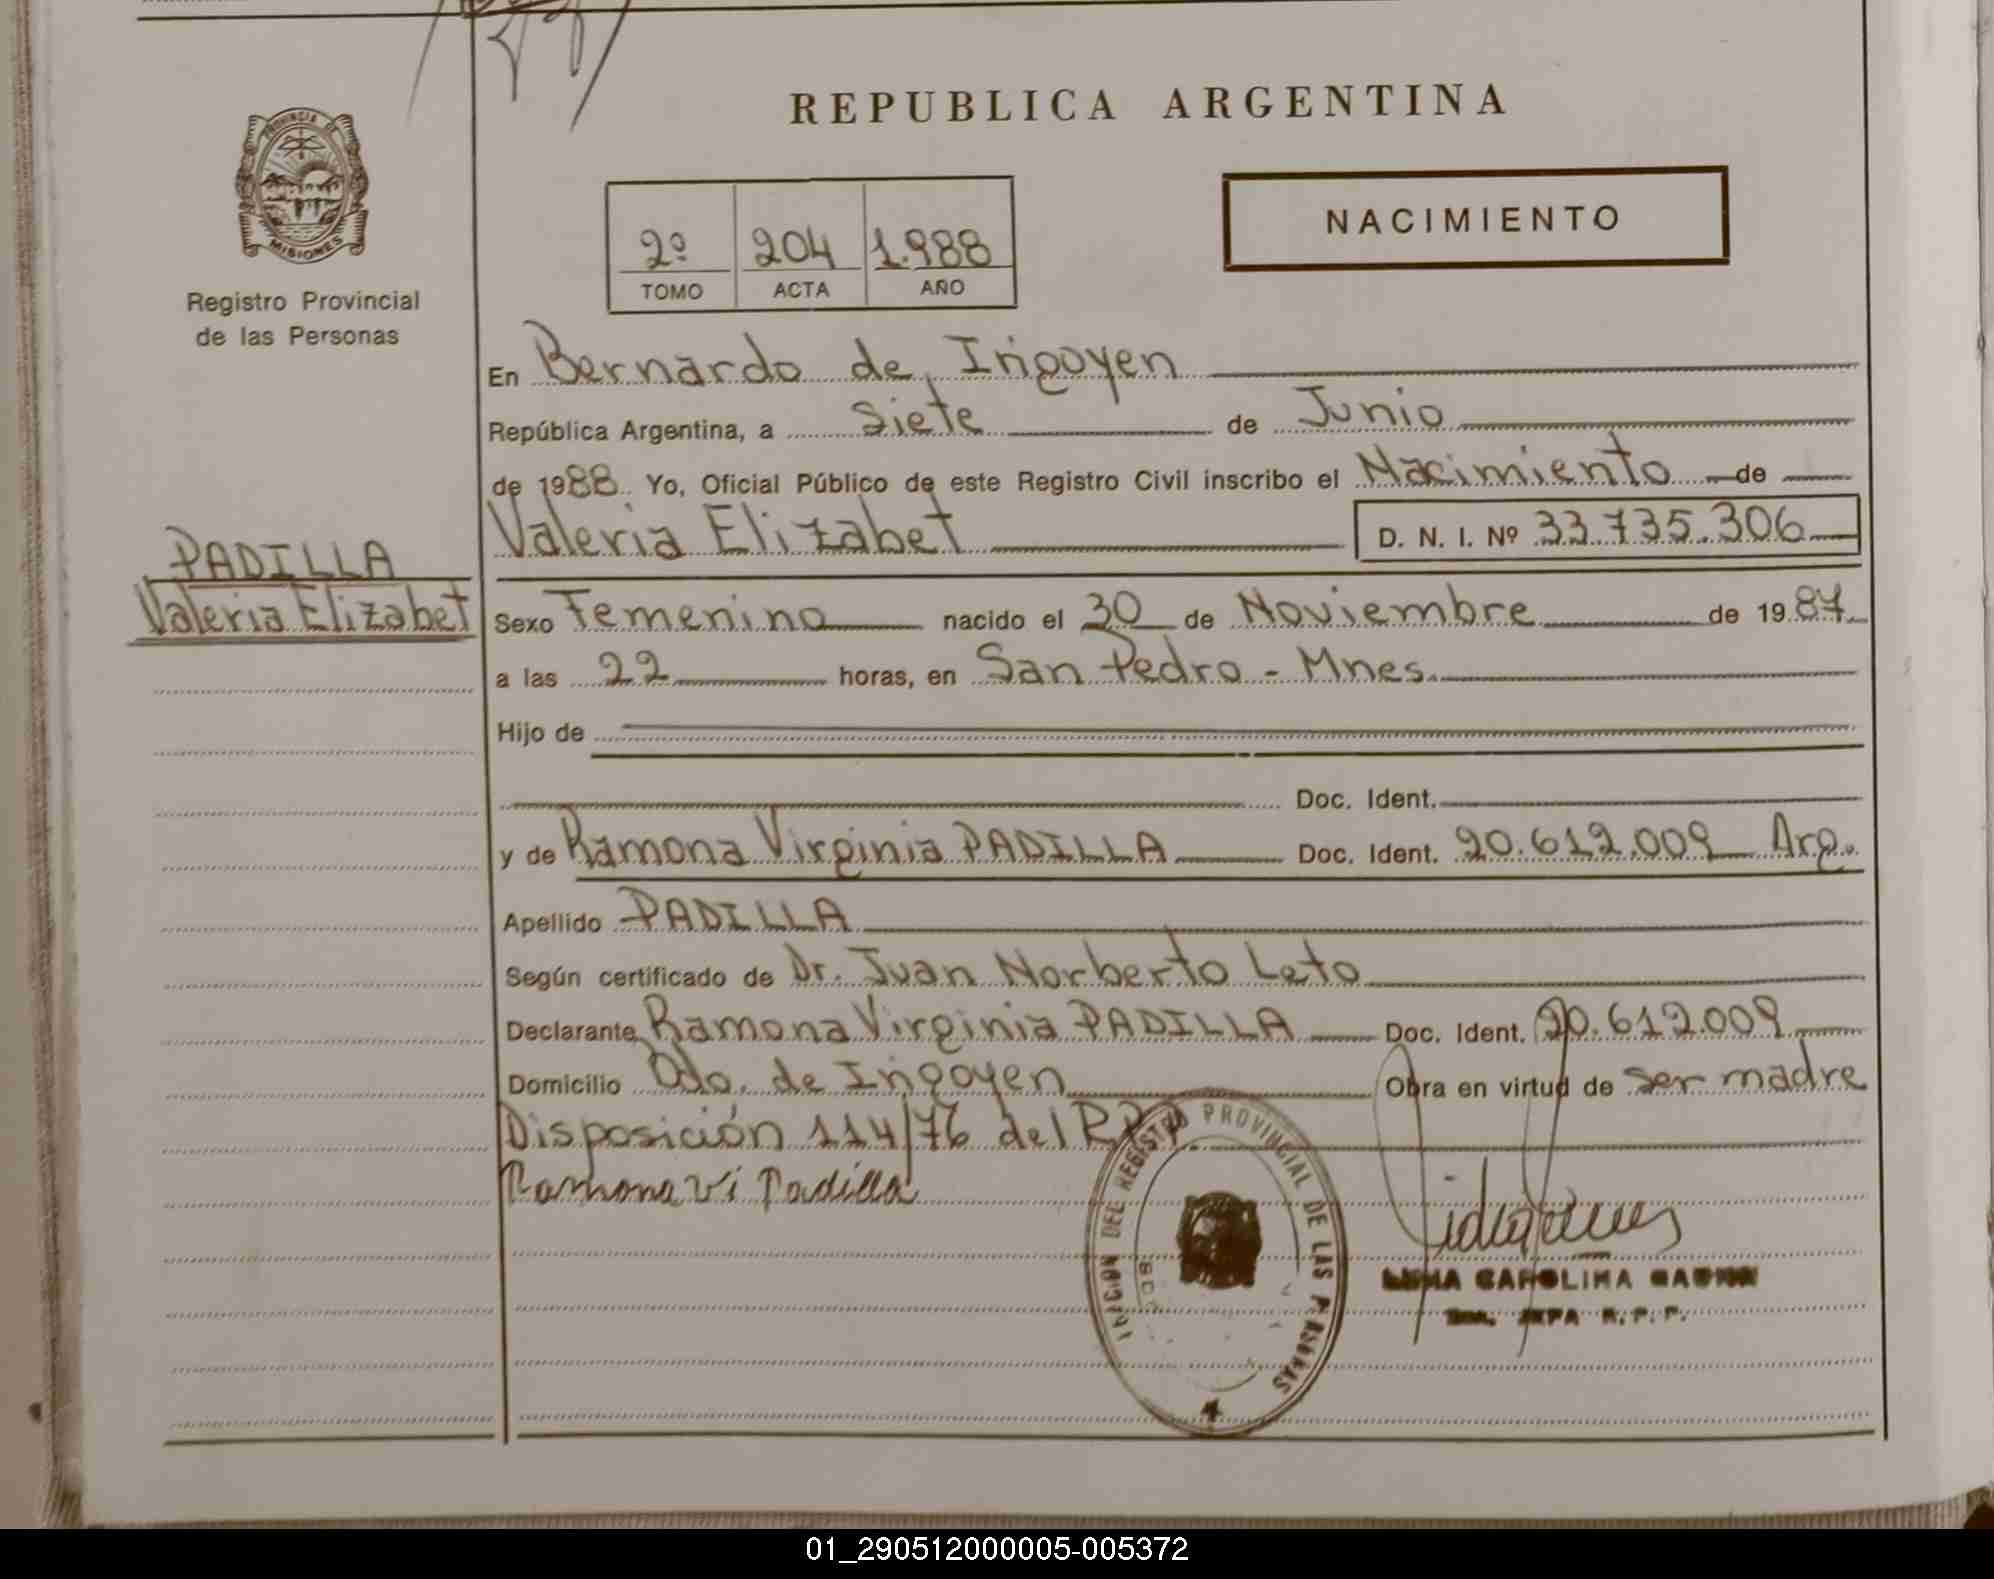 REPUBLICA ARGENTINA
PROVINCIA DE
MISIONES
Registro Provincial
de las Personas
NACIMIENTO
2º 204 1.988
TOMO ACTA AÑO
En Bernardo de Irigoyen
República Argentina, a siete de Junio
de 1988. Yo, Oficial Público de este Registro Civil inscribo el Nacimiento de
Valeria Elizabet D. N. I. Nº 33.735.306
PADILLA
Valeria Elizabet
Sexo Femenino nacido el 30 de Noviembre de 1987
a las 22 horas, en San Pedro - Mnes.
Hijo de
Doc. Ident.
y de Ramona Virginia PADILLA Doc. Ident. 20.612.009 Arg.
Apellido PADILLA
Según certificado de Dr. Juan Norberto Leto
Declarante Ramona Virginia PADILLA Doc. Ident. 20.612.009
Domicilio Bdo. de Irigoyen Obra en virtud de ser madre
Disposición 114/76 del R.P.P.
Ramona Vi Padilla
DEL REGISTRO PROVINCIAL DE LAS PERSONAS
CAROLINA
JEFA R.P.P.
01_290512000005-005372